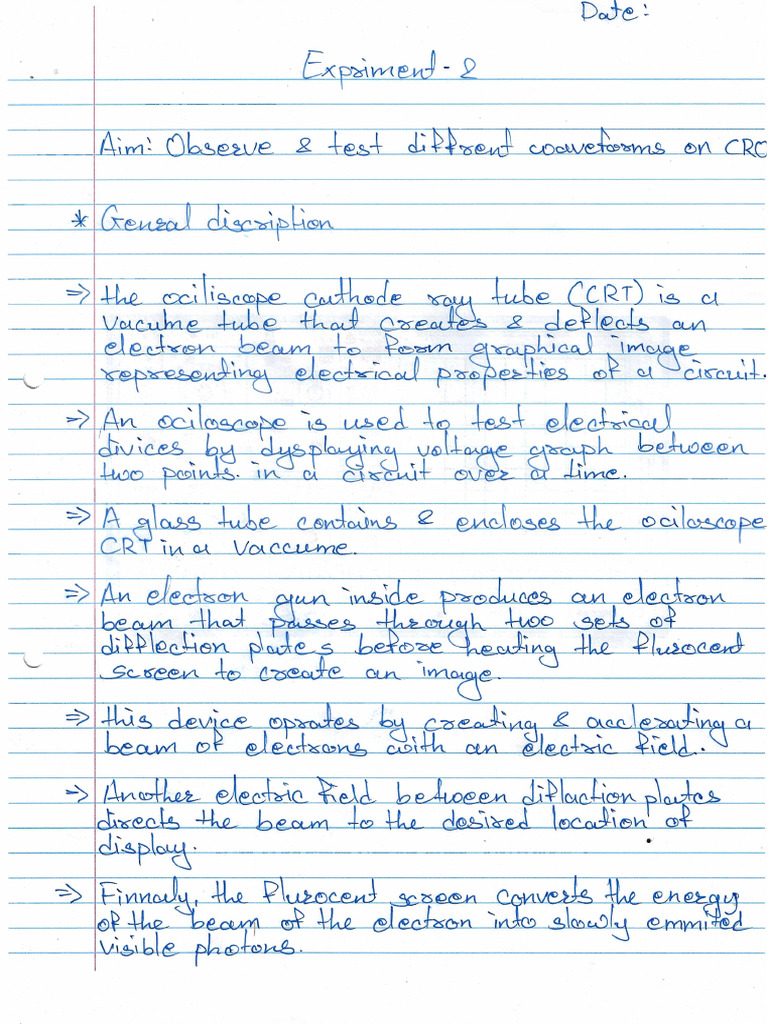 Date:
Expriment - 2
Aim: Observe & test diffrent waveforms on CRO
* Genral discription
⇒ the ociliscope cathode ray tube (CRT) is a
vacume tube that creates & deflects an
electron beam to form graphical image
representing electrical properties of a circuit.
⇒ An ociloscope is used to test electrical
divices by dysplaying voltage graph between
two points. in a circuit over a time.
⇒ A glass tube contains & encloses the ociloscope
CRT in a vaccume.
⇒ An electron gun inside produces an electron
beam that passes through two sets of
difflection plates before heating the flurocent
screen to create an image.
⇒ this device oprates by creating & acclerating a
beam of electrons with an electric field.
⇒ Another electric field between diflaction plates
directs the beam to the desired location of
display.
⇒ Finnaly, the flurocent screen converts the energy
of the beam of the electron into slowly emmited
visible photons.